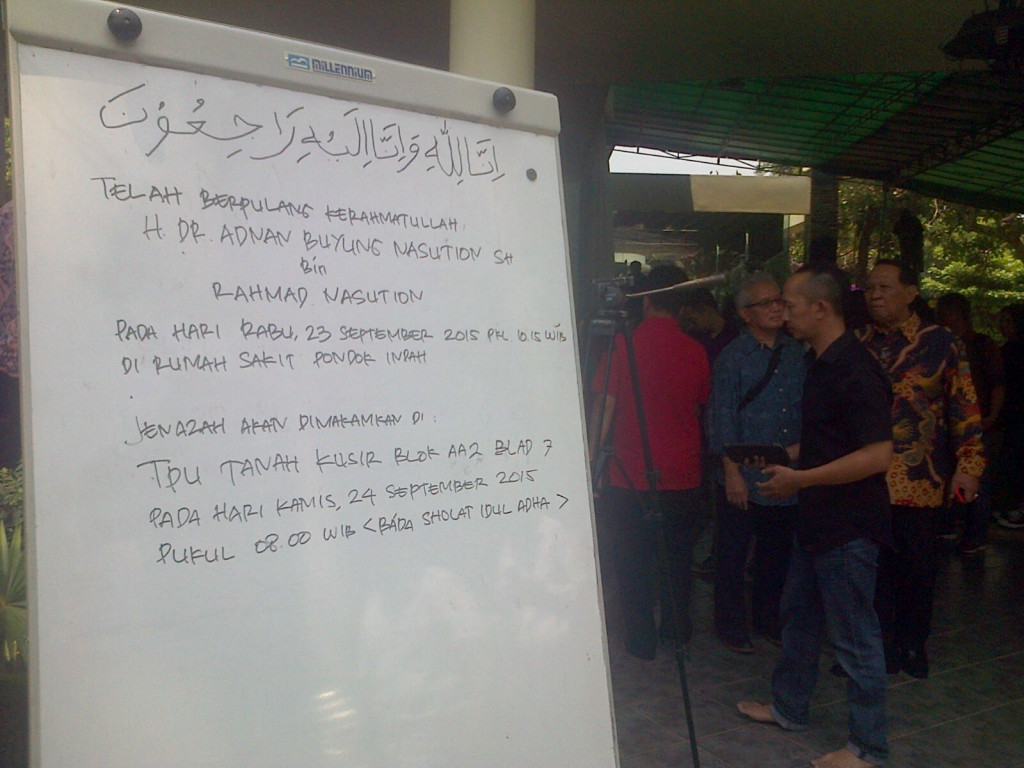 MILLENNIUM
اِنَّالِلّٰهِ وَاِنَّااِلَيْهِ رَاجِعُوْنَ
TELAH BERPULANG KERAHMATULLAH,
H. DR. ADNAN BUYUNG NASUTION SH
Bin
RAHMAD NASUTION
PADA HARI RABU, 23 SEPTEMBER 2015 PKL 10.15 WIB
DI RUMAH SAKIT PONDOK INDAH
JENAZAH AKAN DIMAKAMKAN DI :
TPU TANAH KUSIR BLOK AA2 BLAD 7
PADA HARI KAMIS, 24 SEPTEMBER 2015
PUKUL 08.00 WIB <BA'DA SHOLAT IDUL ADHA>